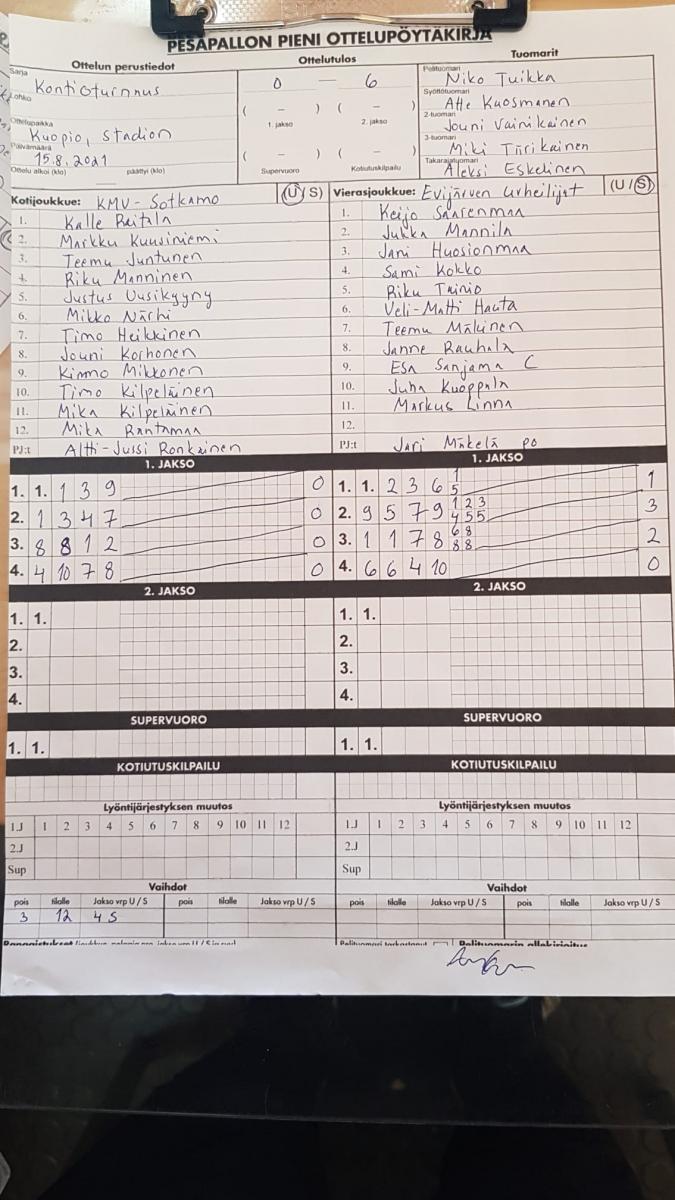 PESÄPALLON PIENI OTTELUPÖYTÄKIRJA
Ottelun perustiedot
Sarja
Kontioturnnus
Lohko
Ottelupaikka
Kuopio, Stadion
Päivämäärä
15.8.2021
Ottelu alkoi (klo) päättyi (klo)
Ottelutulos
0 — 6
( – ) ( – )
1. jakso 2. jakso
( – ) ( – )
Supervuoro Kotiutuskilpailu
Tuomarit
Pelituomari
Niko Tuikka
Syöttötuomari
Atte Kuosmanen
2-tuomari
Jouni Vainikainen
3-tuomari
Miki Tiirikainen
Takarajatuomari
Aleksi Eskelinen
Kotijoukkue: KMV - Sotkamo (U/S)
1. Kalle Raitala
2. Markku Kuusiniemi
3. Teemu Juntunen
4. Riku Manninen
5. Justus Uusikyyny
6. Mikko Närhi
7. Timo Heikkinen
8. Jouni Korhonen
9. Kimmo Mikkonen
10. Timo Kilpeläinen
11. Mika Kilpeläinen
12. Mika Rantamaa
PJ:t Altti-Jussi Ronkainen
Vierasjoukkue: Evijärven Urheilijat (U/S)
1. Keijo Saarenmaa
2. Jukka Mannila
3. Jani Huosionmaa
4. Sami Kokko
5. Riku Tainio
6. Veli-Matti Hauta
7. Teemu Mäkinen
8. Janne Rauhala
9. Esa Sanjama C
10. Juha Kuoppala
11. Markus Linna
12.
PJ:t Jari Mäkelä PO
1. JAKSO
1. 1. 1 3 9 0
2. 1 3 4 7 0
3. 8 8 1 2 0
4. 4 10 7 8 0
1. JAKSO
1. 1. 2 3 6 1 5 1
2. 9 5 7 9 1 2 3 4 5 5 3
3. 1 1 7 8 6 8 8 8 2
4. 6 6 4 10 0
2. JAKSO
1. 1.
2.
3.
4.
2. JAKSO
1. 1.
2.
3.
4.
SUPERVUORO
1. 1.
SUPERVUORO
1. 1.
KOTIUTUSKILPAILU
KOTIUTUSKILPAILU
Lyöntijärjestyksen muutos
1.J 1 2 3 4 5 6 7 8 9 10 11 12
2.J
Sup
Lyöntijärjestyksen muutos
1.J 1 2 3 4 5 6 7 8 9 10 11 12
2.J
Sup
Vaihdot
pois tilalle Jakso vrp U / S pois tilalle Jakso vrp U / S
3 12 4 S
Vaihdot
pois tilalle Jakso vrp U / S pois tilalle Jakso vrp U / S
Pelituomarin allekirjoitus